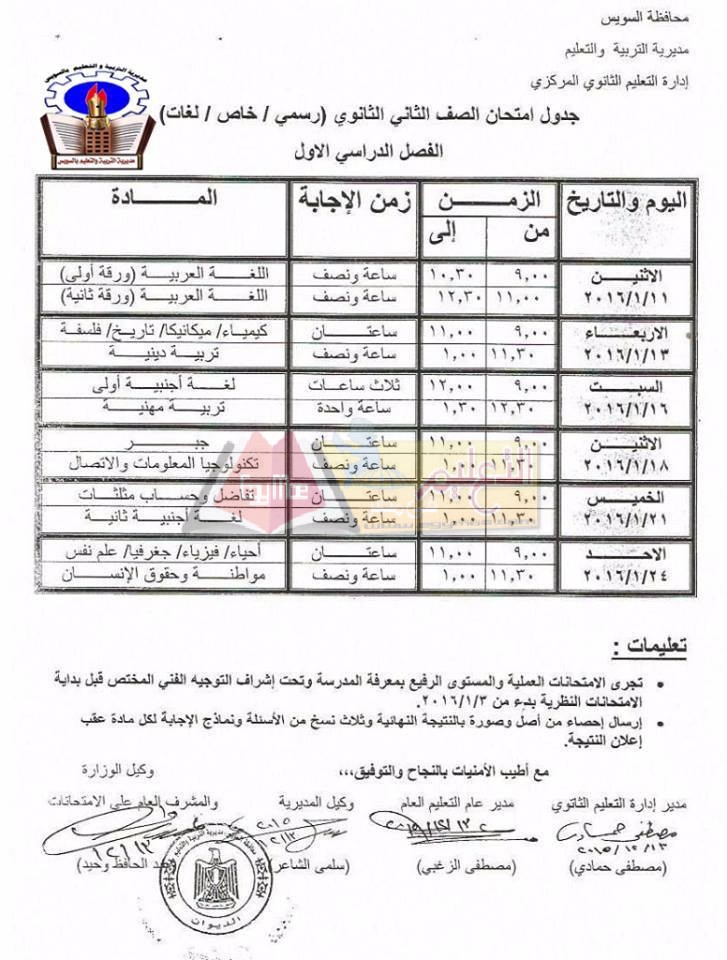 محافظة السويس
مديرية التربية والتعليم
إدارة التعليم الثانوي المركزي
مديرية التربية و التعليم بالسويس
مديرية التربية والتعليم بالسويس
جدول امتحان الصف الثاني الثانوي (رسمي / خاص / لغات)
الفصل الدراسي الاول
اليوم والتاريخ الزمن زمن الإجابة المادة
من إلى
الاثنين ٩,٠٠ ١٠,٣٠ ساعة ونصف اللغة العربية (ورقة أولى)
٢٠١٦/١/١١ ١١,٠٠ ١٢,٣٠ ساعة ونصف اللغة العربية (ورقة ثانية)
الاربعاء ٩,٠٠ ١١,٠٠ ساعتان كيمياء/ ميكانيكا/ تاريخ/ فلسفة
٢٠١٦/١/١٣ ١١,٣٠ ١,٠٠ ساعة ونصف تربية دينية
السبت ٩,٠٠ ١٢,٠٠ ثلاث ساعات لغة أجنبية أولى
٢٠١٦/١/١٦ ١٢,٣٠ ١,٣٠ ساعة واحدة تربية مهنية
الاثنين ٩,٠٠ ١١,٠٠ ساعتان جبر
٢٠١٦/١/١٨ ١١,٣٠ ١,٠٠ ساعة ونصف تكنولوجيا المعلومات والاتصال
الخميس ٩,٠٠ ١١,٠٠ ساعتان تفاضل وحساب مثلثات
٢٠١٦/١/٢١ ١١,٣٠ ١,٠٠ ساعة ونصف لغة أجنبية ثانية
الاحد ٩,٠٠ ١١,٠٠ ساعتان أحياء/ فيزياء/ جغرفيا/ علم نفس
٢٠١٦/١/٢٤ ١١,٣٠ ١,٠٠ ساعة ونصف مواطنة وحقوق الإنسان
تعليمات :
• تجرى الامتحانات العملية والمستوى الرفيع بمعرفة المدرسة وتحت إشراف التوجيه الفني المختص قبل بداية
الامتحانات النظرية بدء من ٢٠١٦/١/٣.
• إرسال إحصاء من أصل وصورة بالنتيجة النهائية وثلاث نسخ من الأسئلة ونماذج الإجابة لكل مادة عقب
إعلان النتيجة.
مع أطيب الأمنيات بالنجاح والتوفيق،،،
وكيل الوزارة
مدير إدارة التعليم الثانوي مدير عام التعليم العام وكيل المديرية والمشرف العام على الامتحانات
مصطفى حمادي
٢٠١٥/١٢/١٣
(مصطفى حمادي) (مصطفى الزغبي) (سلمى الشاعر) الحافظ وحيد)
الديوان